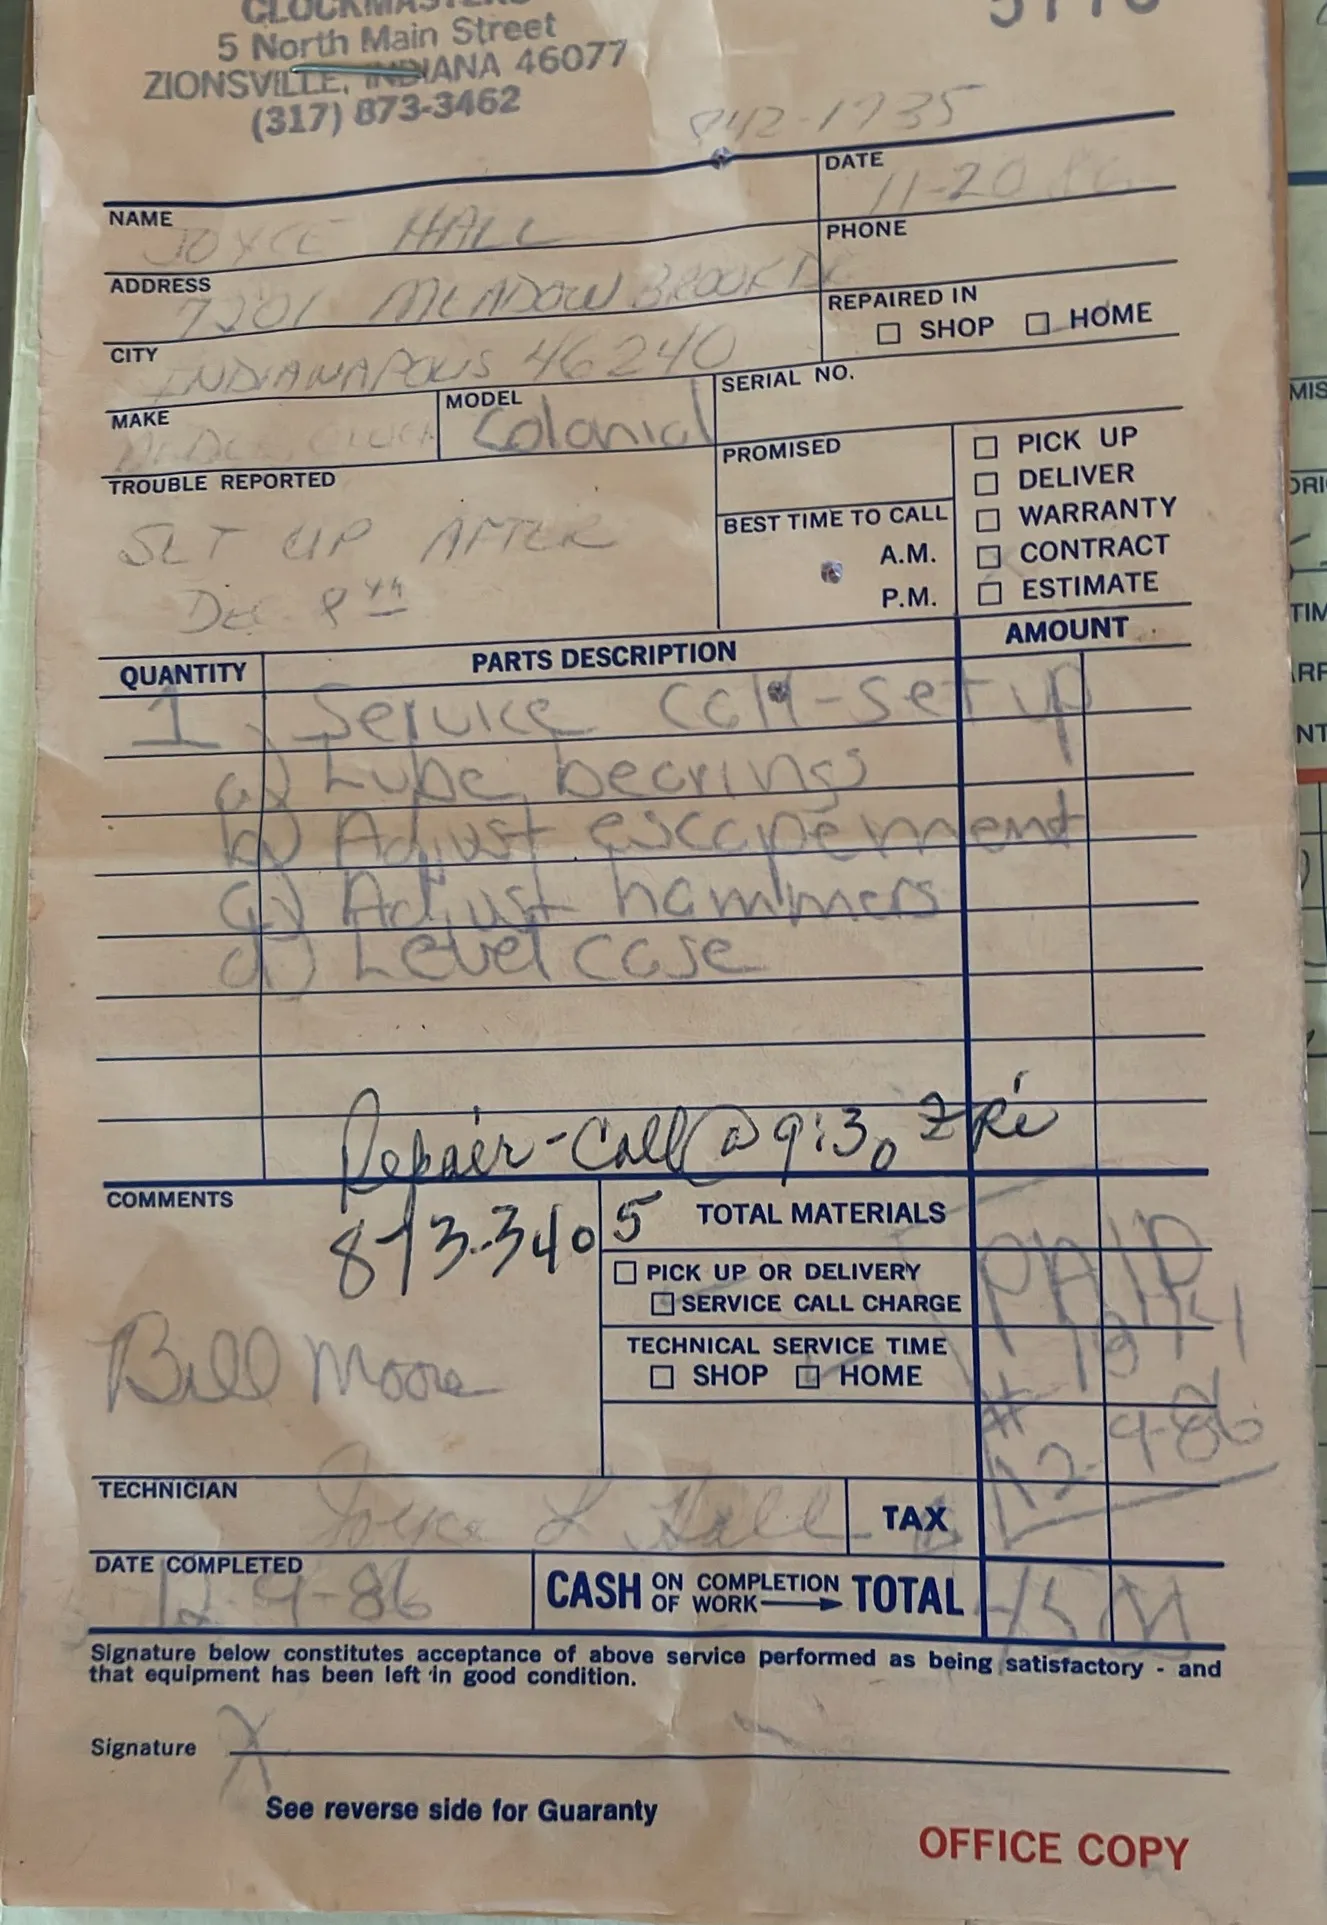 5 North Main Street
ZIONSVILLE, INDIANA 46077
(317) 873-3462
842-1735
DATE
11-20 86
NAME
JOYCE HALL
PHONE
ADDRESS
7201 MEADOW BROOK DR
REPAIRED IN
☐ SHOP ☐ HOME
CITY
INDIANAPOLIS 46240
MAKE
MODEL
Colonial
SERIAL NO.
TROUBLE REPORTED
SET UP AFTER
Dec 8th
PROMISED
BEST TIME TO CALL
A.M.
P.M.
☐ PICK UP
☐ DELIVER
☐ WARRANTY
☐ CONTRACT
☐ ESTIMATE
QUANTITY PARTS DESCRIPTION AMOUNT
1 Service call-set up
a) Lube bearings
b) Adjust escapement
c) Adjust hammers
d) Level case
Repair-Call @ 9:30
COMMENTS
873-3405
Bill Moore
TOTAL MATERIALS
☐ PICK UP OR DELIVERY
☐ SERVICE CALL CHARGE
TECHNICAL SERVICE TIME
☐ SHOP ☐ HOME
PAID
#
12-9-86
TECHNICIAN
Joyce L Hall
TAX
DATE COMPLETED
12-9-86
CASH ON COMPLETION OF WORK TOTAL
45
Signature below constitutes acceptance of above service performed as being satisfactory - and
that equipment has been left in good condition.
Signature X
See reverse side for Guaranty
OFFICE COPY